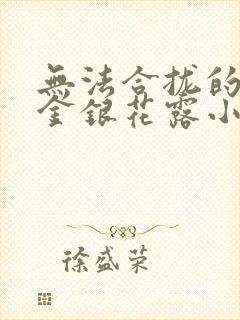 無法合拢的
金銀花露小
徐盛荣